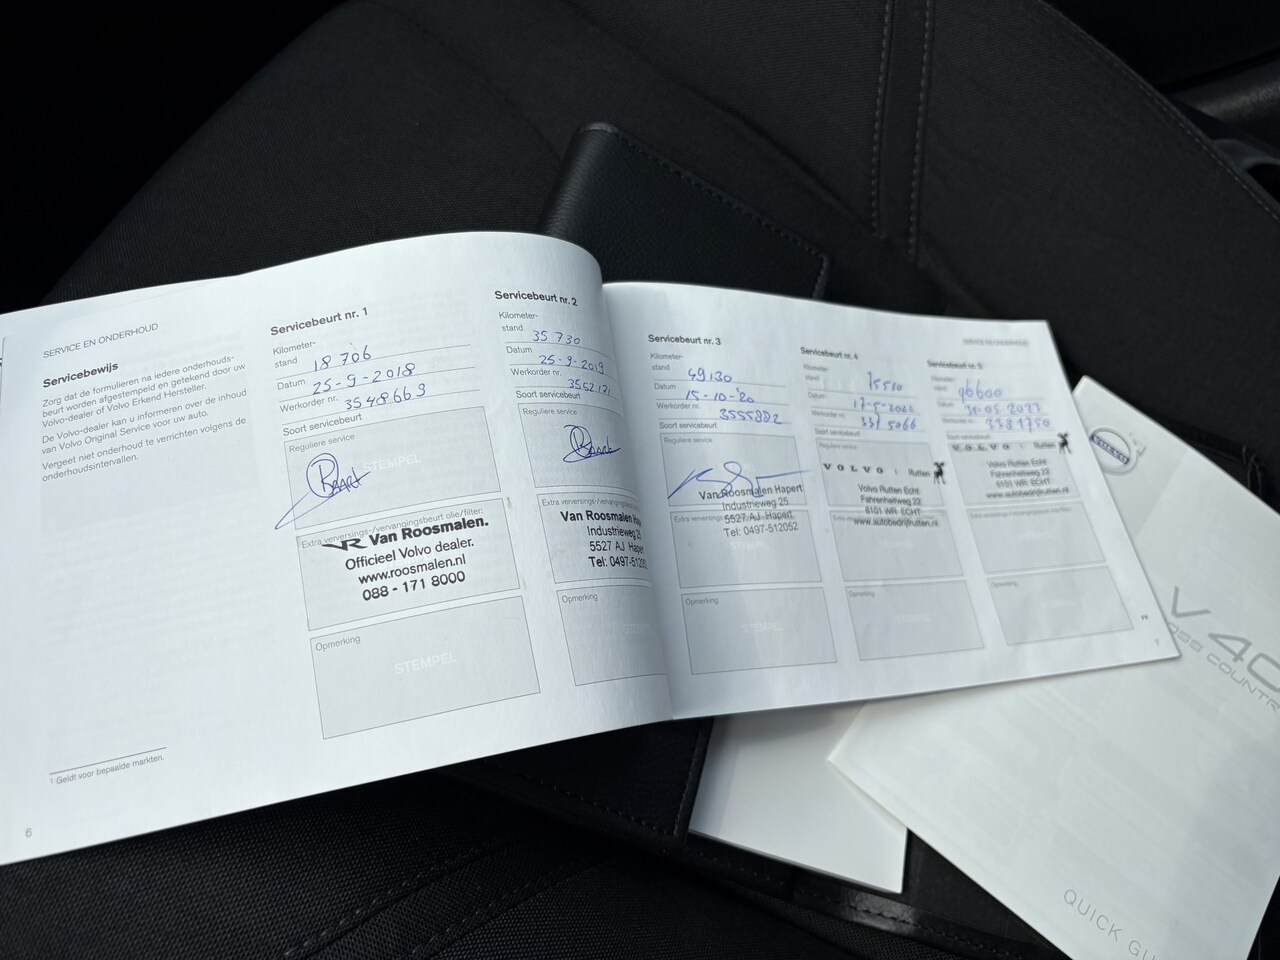 SERVICE EN ONDERHOUD
Servicebewijs
Zorg dat de formulieren na iedere onderhouds-
beurt worden afgestempeld en getekend door uw
Volvo-dealer of Volvo Erkend Hersteller.
De Volvo-dealer kan u informeren over de inhoud
van Volvo Original Service voor uw auto.
Vergeet niet onderhoud te verrichten volgens de
onderhoudsintervallen.
1 Geldt voor bepaalde markten.
6
Servicebeurt nr. 1
Kilometer-
stand 18 706
Datum 25-9-2018
Werkorder nr. 3548669
Soort servicebeurt
Reguliere service
STEMPEL
Extra verversings-/vervangingsbeurt olie/filter:
VR Van Roosmalen.
Officieel Volvo dealer.
www.roosmalen.nl
088 - 171 8000
Opmerking
STEMPEL
Servicebeurt nr. 2
Kilometer-
stand 35 730
Datum 25-9-2019
Werkorder nr. 3552171
Soort servicebeurt
Reguliere service
Extra verversings-/vervangings
Van Roosmalen
Industrieweg
5527 AJ Hapert
Tel: 0497-512052
Opmerking
Servicebeurt nr. 3
Kilometer-
stand 49130
Datum 15-10-'20
Werkorder nr. 3555882
Soort servicebeurt
Reguliere service
Van Roosmalen Hapert
Industrieweg 25
5527 AJ Hapert
Tel: 0497-512052
Extra verversings
Opmerking
STEMPEL
Servicebeurt nr. 4
Kilometer-
stand 75510
Datum 17-5-2022
Werkorder nr. 3375066
Soort servicebeurt
Reguliere service
VOLVO Rutten
Volvo Rutten Echt
Fahrenheitweg 22
6101 WR ECHT
www.autobedrijfrutten.nl
Opmerking
SERVICE EN ONDERHOUD
Servicebeurt nr. 5
Kilometer-
stand 96600
Datum 31-05-2023
Werkorder nr. 3381750
Soort servicebeurt
VOLVO Rutten
Volvo Rutten Echt
Fahrenheitweg 22
6101 WR ECHT
www.autobedrijfrutten.nl
Opmerking
7
VOLVO
V40
QUICK GU